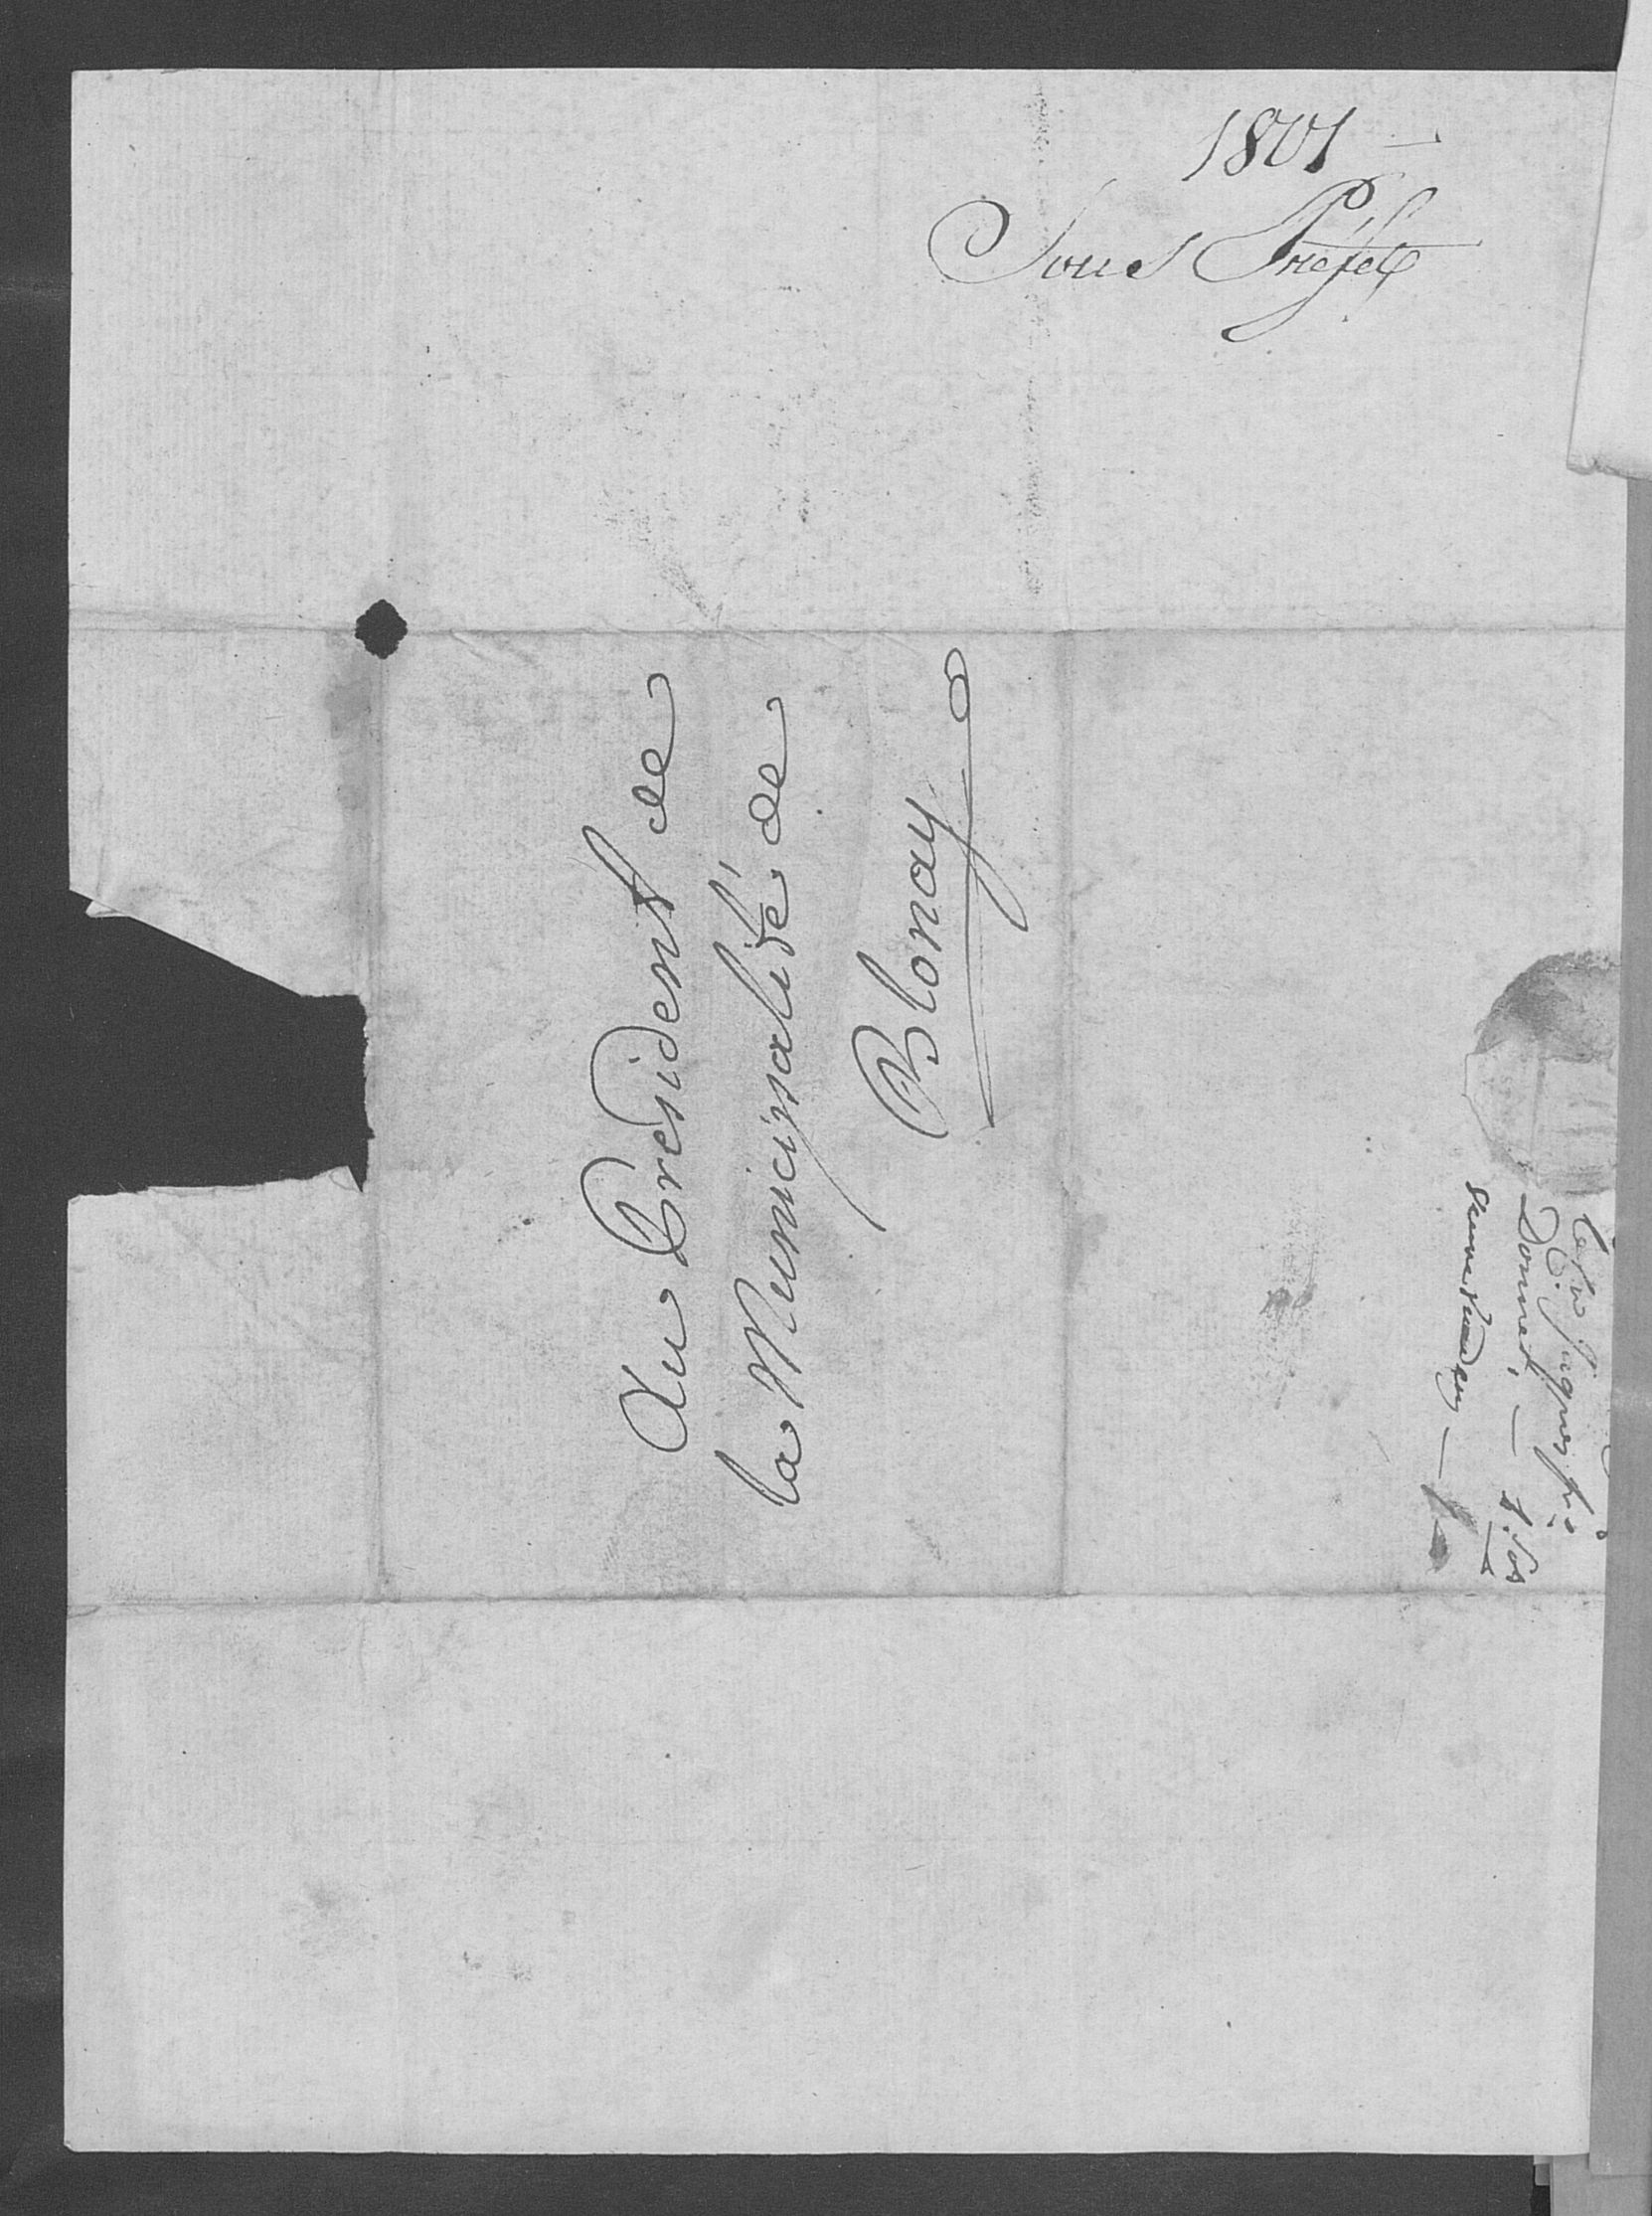 1801
Sous Préfet
Au Président de
la Municipalité de
Blonay
Donnet,